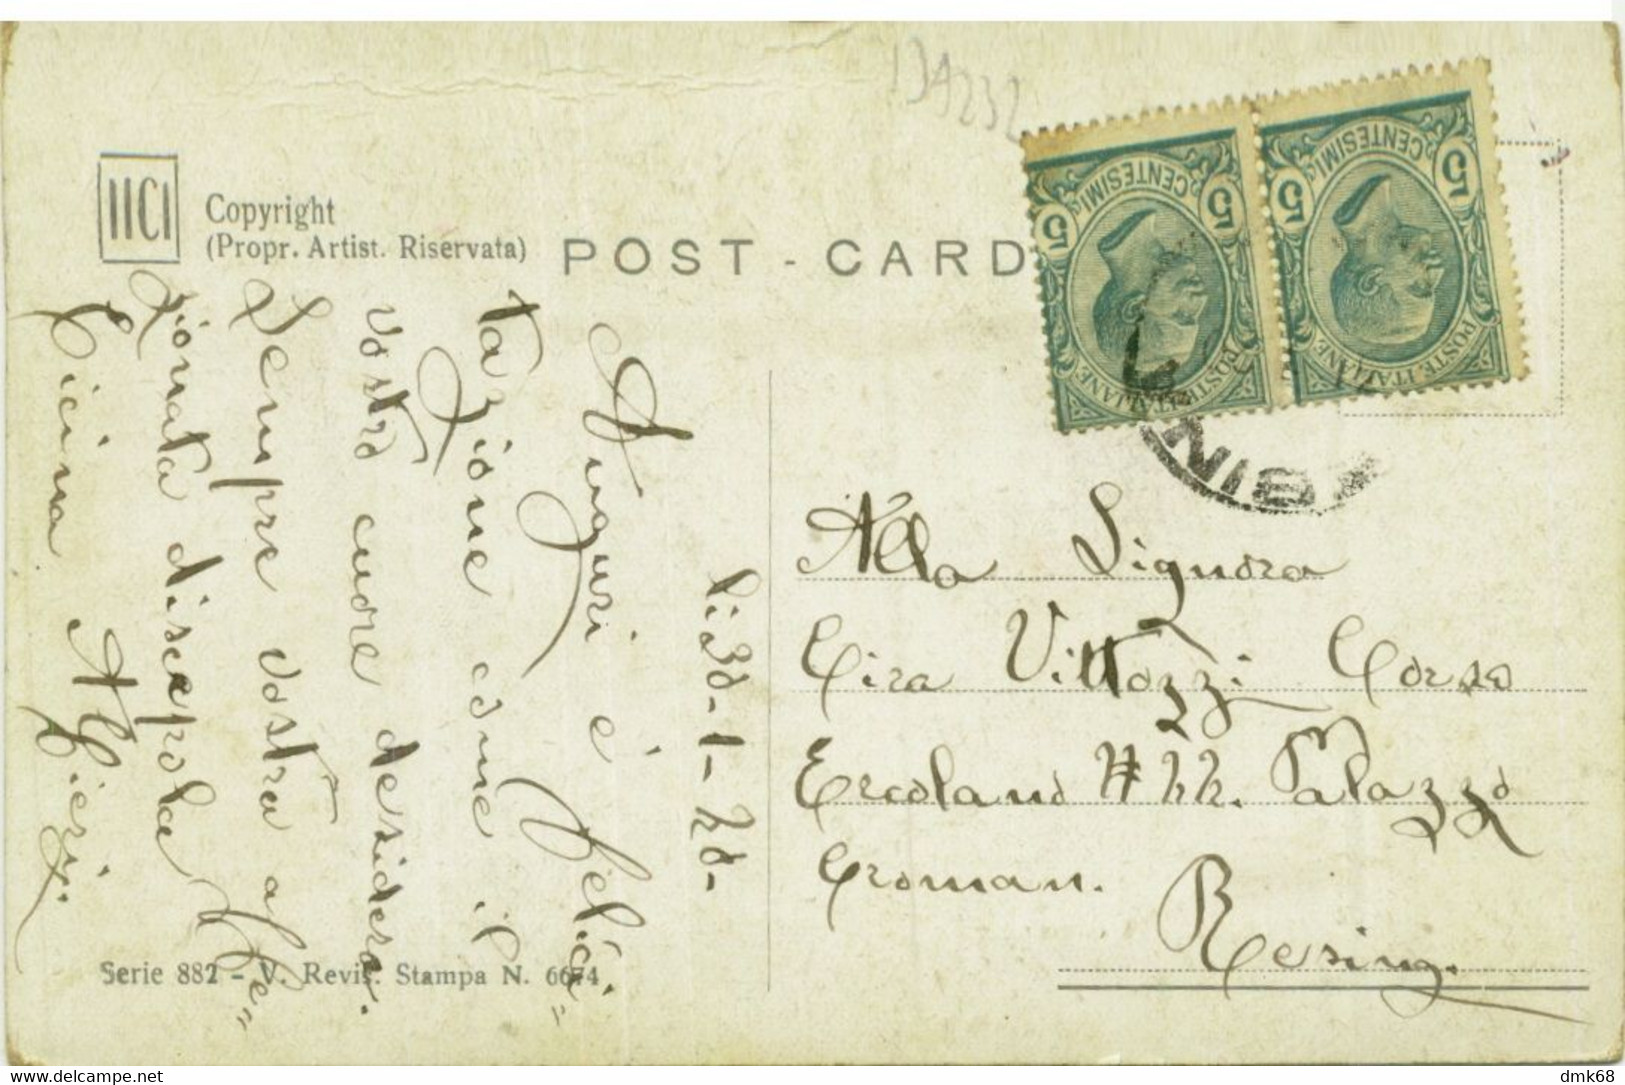 134232
IICI
Copyright
(Propr. Artist. Riservata)
POST - CARD
5 CENTESIMI 5
POSTE ITALIANE
5 CENTESIMI 5
POSTE ITALIANE
li 30-1-20-
Auguri e felici=
tazione come il
vostro cuore desidera.
Sempre vostra affe=
zionata discepola
Cicina Alfieri.
Alla Signora
Cira Vittozzi Corso
Ercolano N 22. Palazzo
Croman.
Resina.
Serie 882 - V. Revis. Stampa N. 6674
delcampe.net
dmk68